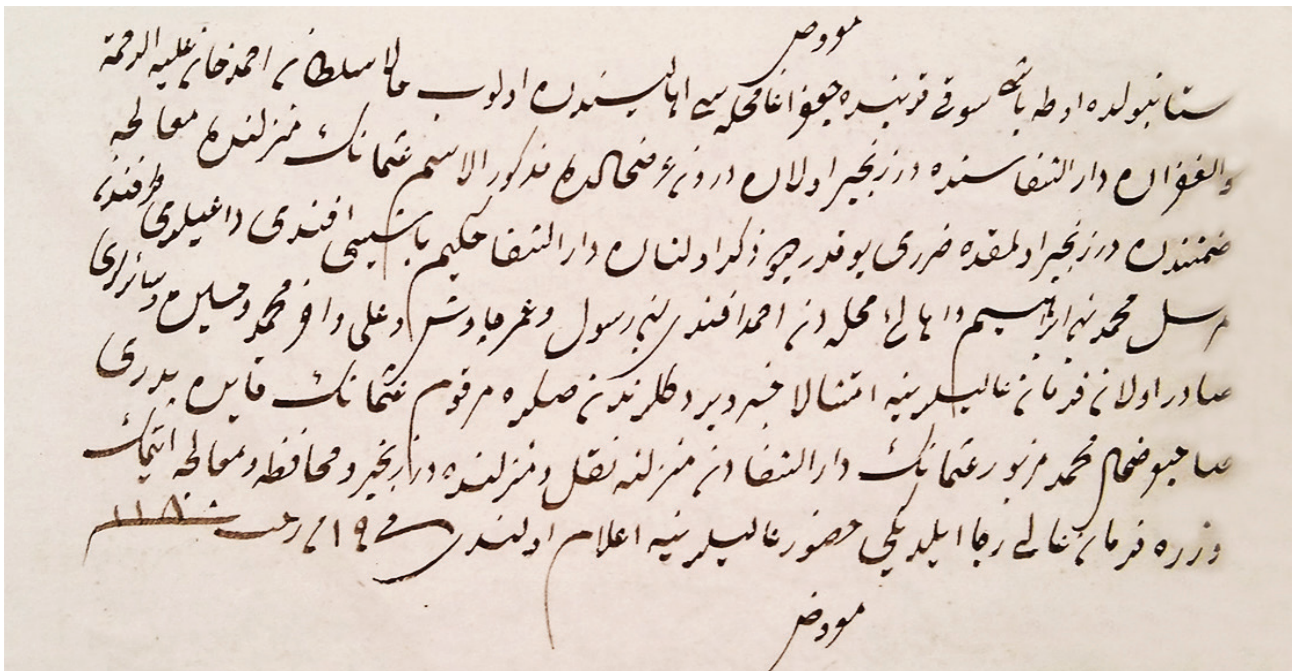 معروض
ستانبولده اوطه باشى سوقى قربنده جعفر اغا محله سى اهاليسندن اولوب حالا سلطان احمد خان عليه الرحمة
والغفران دار الشفاسنده در زنجير اولان درون عرضحالده مذكور الاسم عثمانك منزلنده معالجه
ضمننده در زنجير اولمقده ضررى يوقدر ديو ذكر اولنان دار الشفا حكيم باشيسى افندى داعيلرى طرفندن
مرسل محمد بن ابراهيم واهالئ محله دن احمد افندى بن رسول وعمر چاوش وعلى واخر محمد وحسين وسائرلرى
صادر اولان فرمان عاليلرينه امتثالا خبر ويردكلرندن صكره مرقوم عثمانك قاين پدرى
صاحب عرضحال محمد مزبور عثمانك دار الشفادن منزلنه نقل ومنزلنده در زنجير ومحافظه ومعالجه ايتمك
وزره فرمان عالى رجا ايلديكى حضور عاليلرينه اعلام اولندى فى ١٩ ن رجب سنه ١١٨٠
معروض